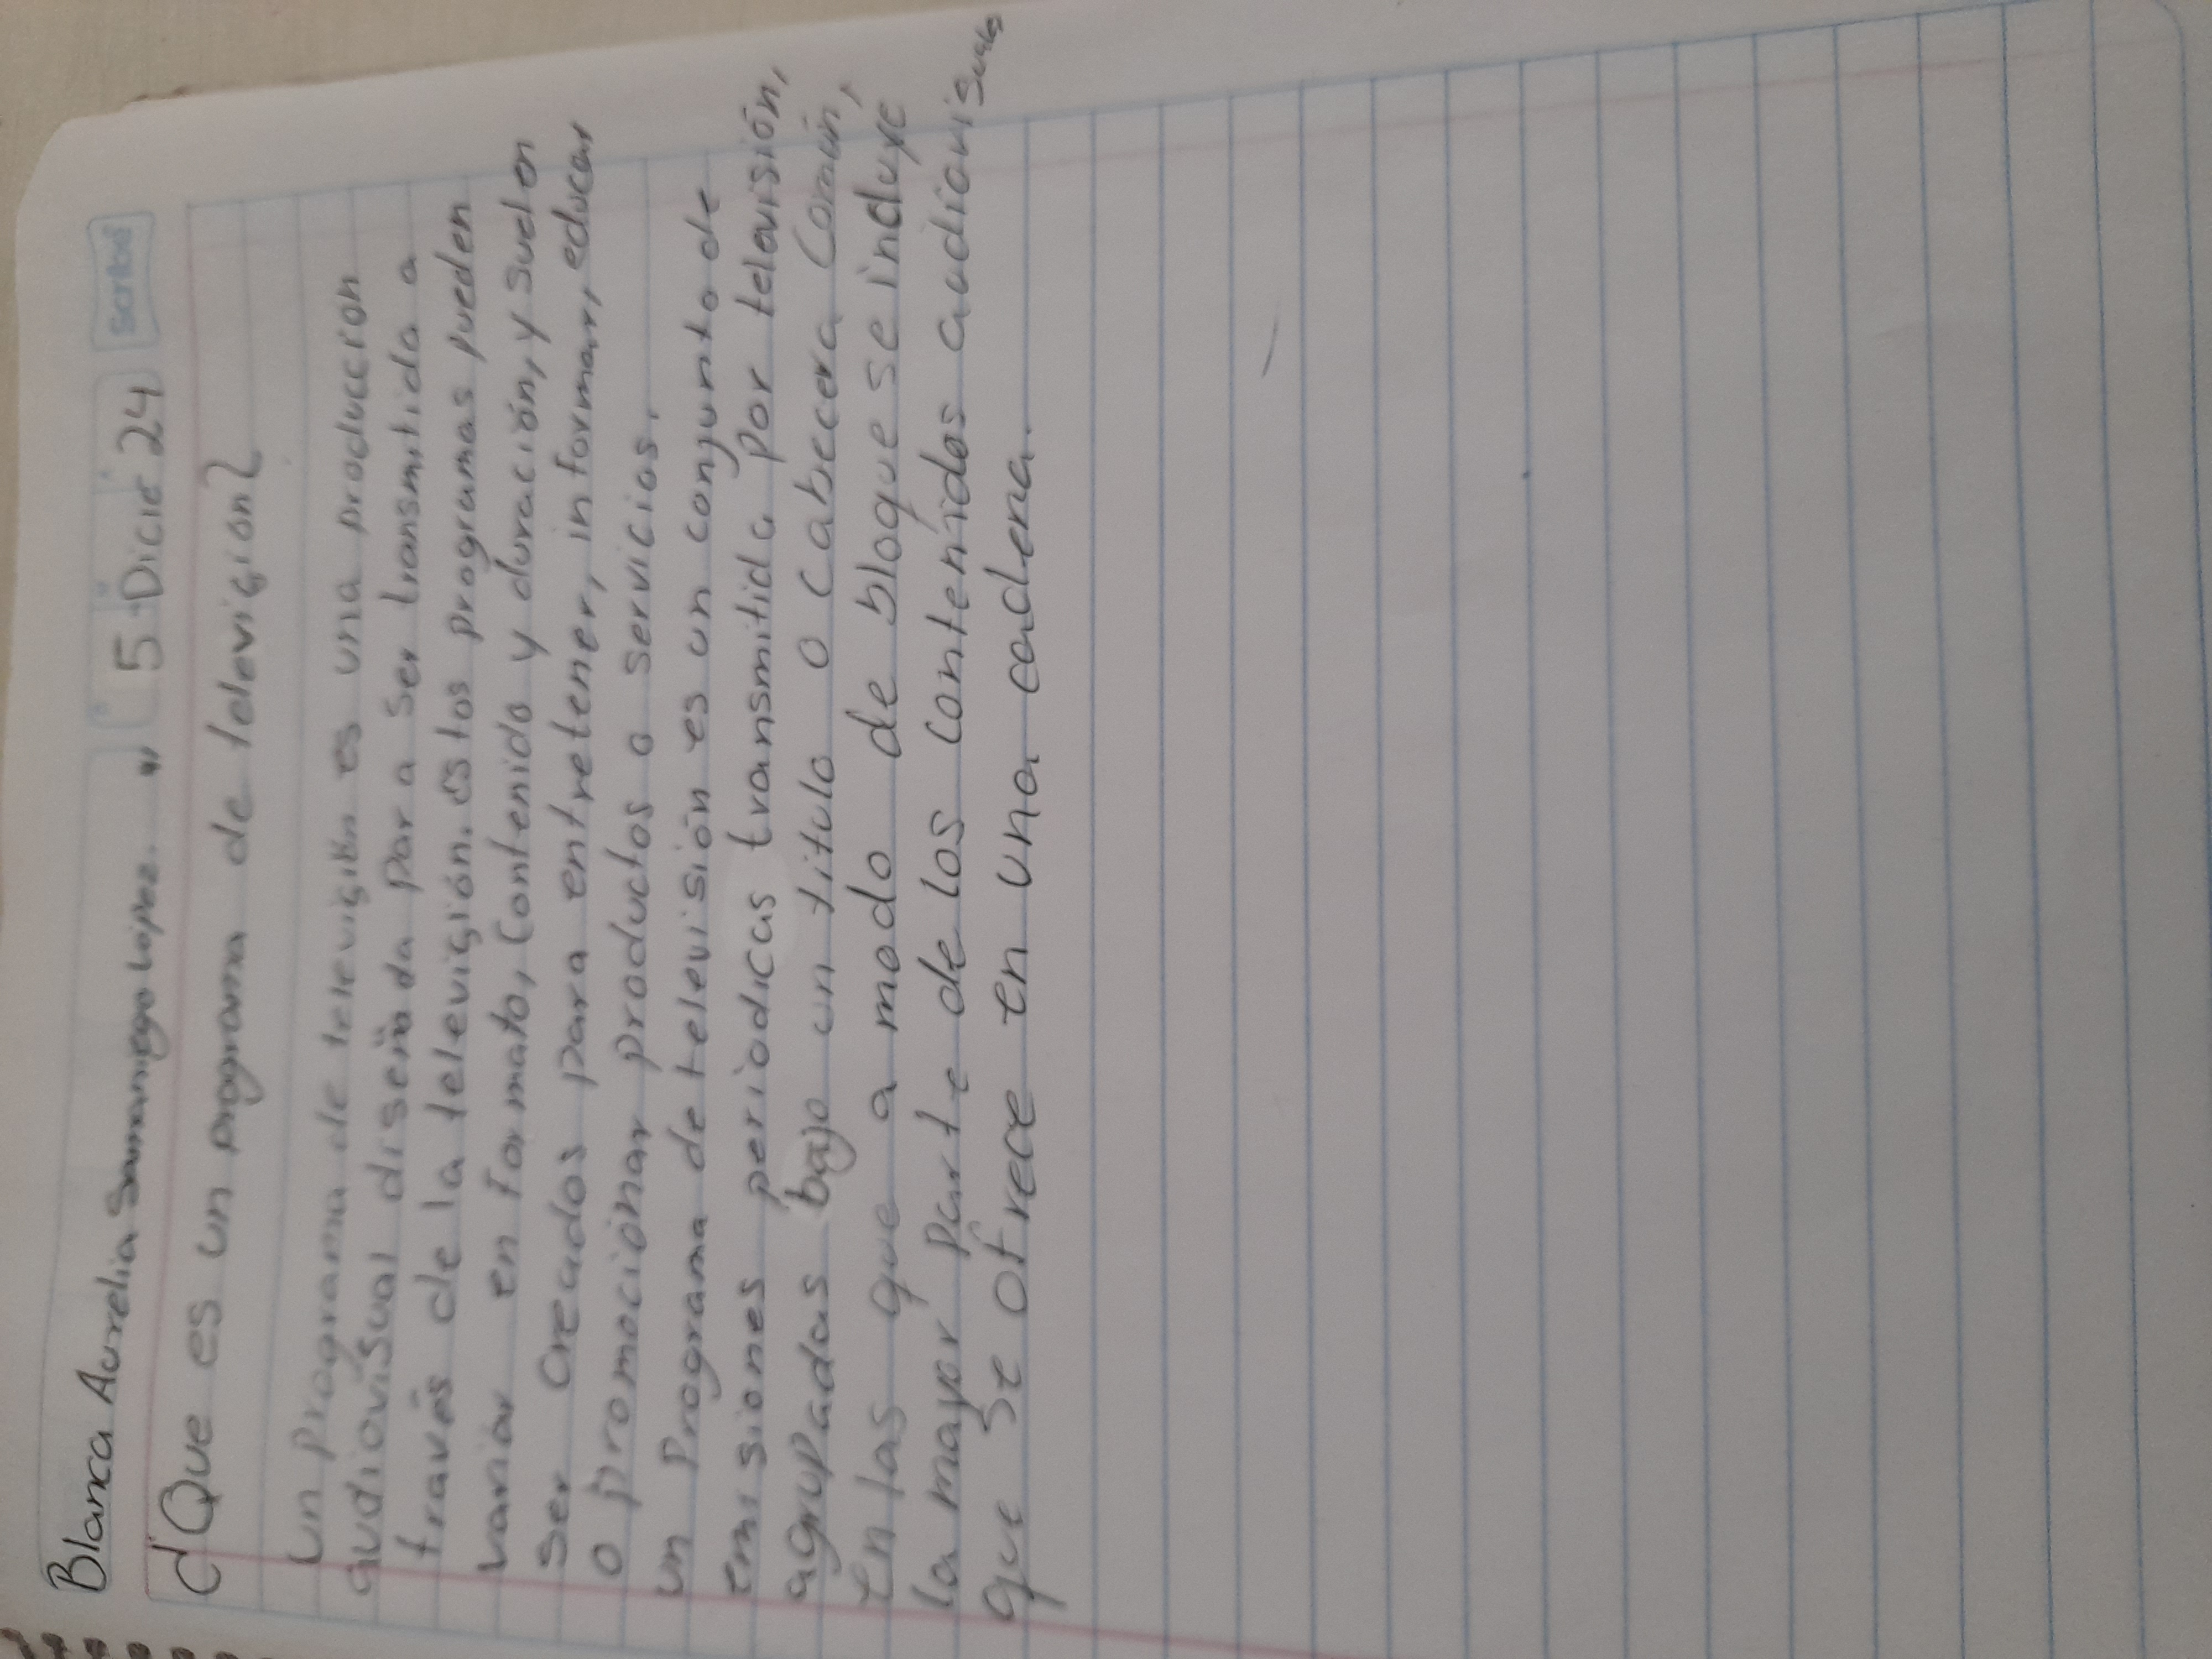 Blanca Aurelia Samaniego López.
5 Dicie 24
Scribe
¿Que es un programa de televición?
Un programa de televición es una producción
audiovisual diseñada para ser transmitida a
través de la televición. Estos programas pueden
variar en formato, contenido y duración, y suelen
ser creados para entretener, informar, educar
o promocionar productos o servicios.
un programa de televisión es un conjunto de
emisiones periodicas transmitida por televisión,
agrupadas bajo un titulo o cabecera común,
En las que a modo de bloque se incluye
la mayor parte de los contenidos audiovisuales
que se ofrece en una cadena.